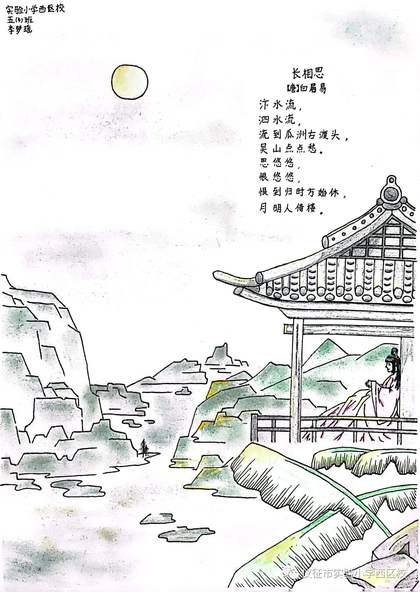 实验小学西区校
班
李梦瑶
长相思
[唐]白居易
汴水流，
泗水流，
流到瓜洲古渡头，
吴山点点愁。
思悠悠，
恨悠悠，
恨到归时方始休，
月明人倚楼。
仪征市实验小学西区校